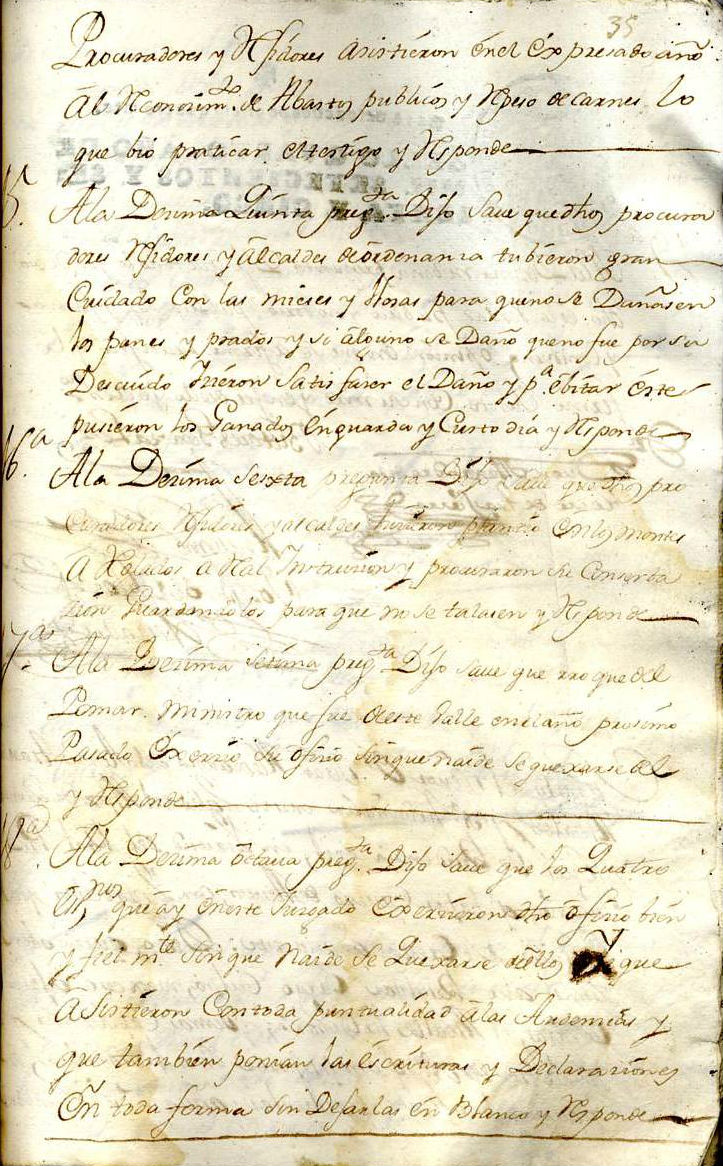 35
Procuradores y Rxidores asistieron en el expresado año
al Reconozim.to de Abastos publicos y Repeso de carnes lo
que bio praticar el testigo y Responde
15.
A la Dezima Quinta preg.ta Dijo save que dhos procura
dores Rxidores y alcaldes de ordenanza tubieron gran
Cuidado con las mieses y Horas para que no se Dañasen
los panes y prados y si alguno se Daño que no fue por su
Descuido hizieron satisfazer el Daño y p.a ebitar este
pusieron los Ganados en guarda y Custodia y Responde
16.a
A la Dezima sexta pregunta Dijo save que dhos pro
curadores Rxidores y alcaldes hizieron plantio en los montes
a Real Instruzion y procuraron su Conserba
zion Guardandolos para que no se talasen y Responde
17.a
A la Dezima setima preg.ta Dijo save que rroque del
Pomar Ministro que fue de este Valle en el año prosimo
Pasado Exerzio su ofizio sin que naide se quexarse del
y Responde
18.a
A la Dezima octava preg.ta Dijo save que los Quatro
Es.nos que ay en este Juzgado Exerzieron dho ofizio bien
y fiel m.te sin que Naide se Quexarse dellos y que
asistieron con toda puntualidad a las Audenzias y
que tambien ponian las escrituras y Declaraziones
en toda forma sin Dejarlas en Blanco y Responde